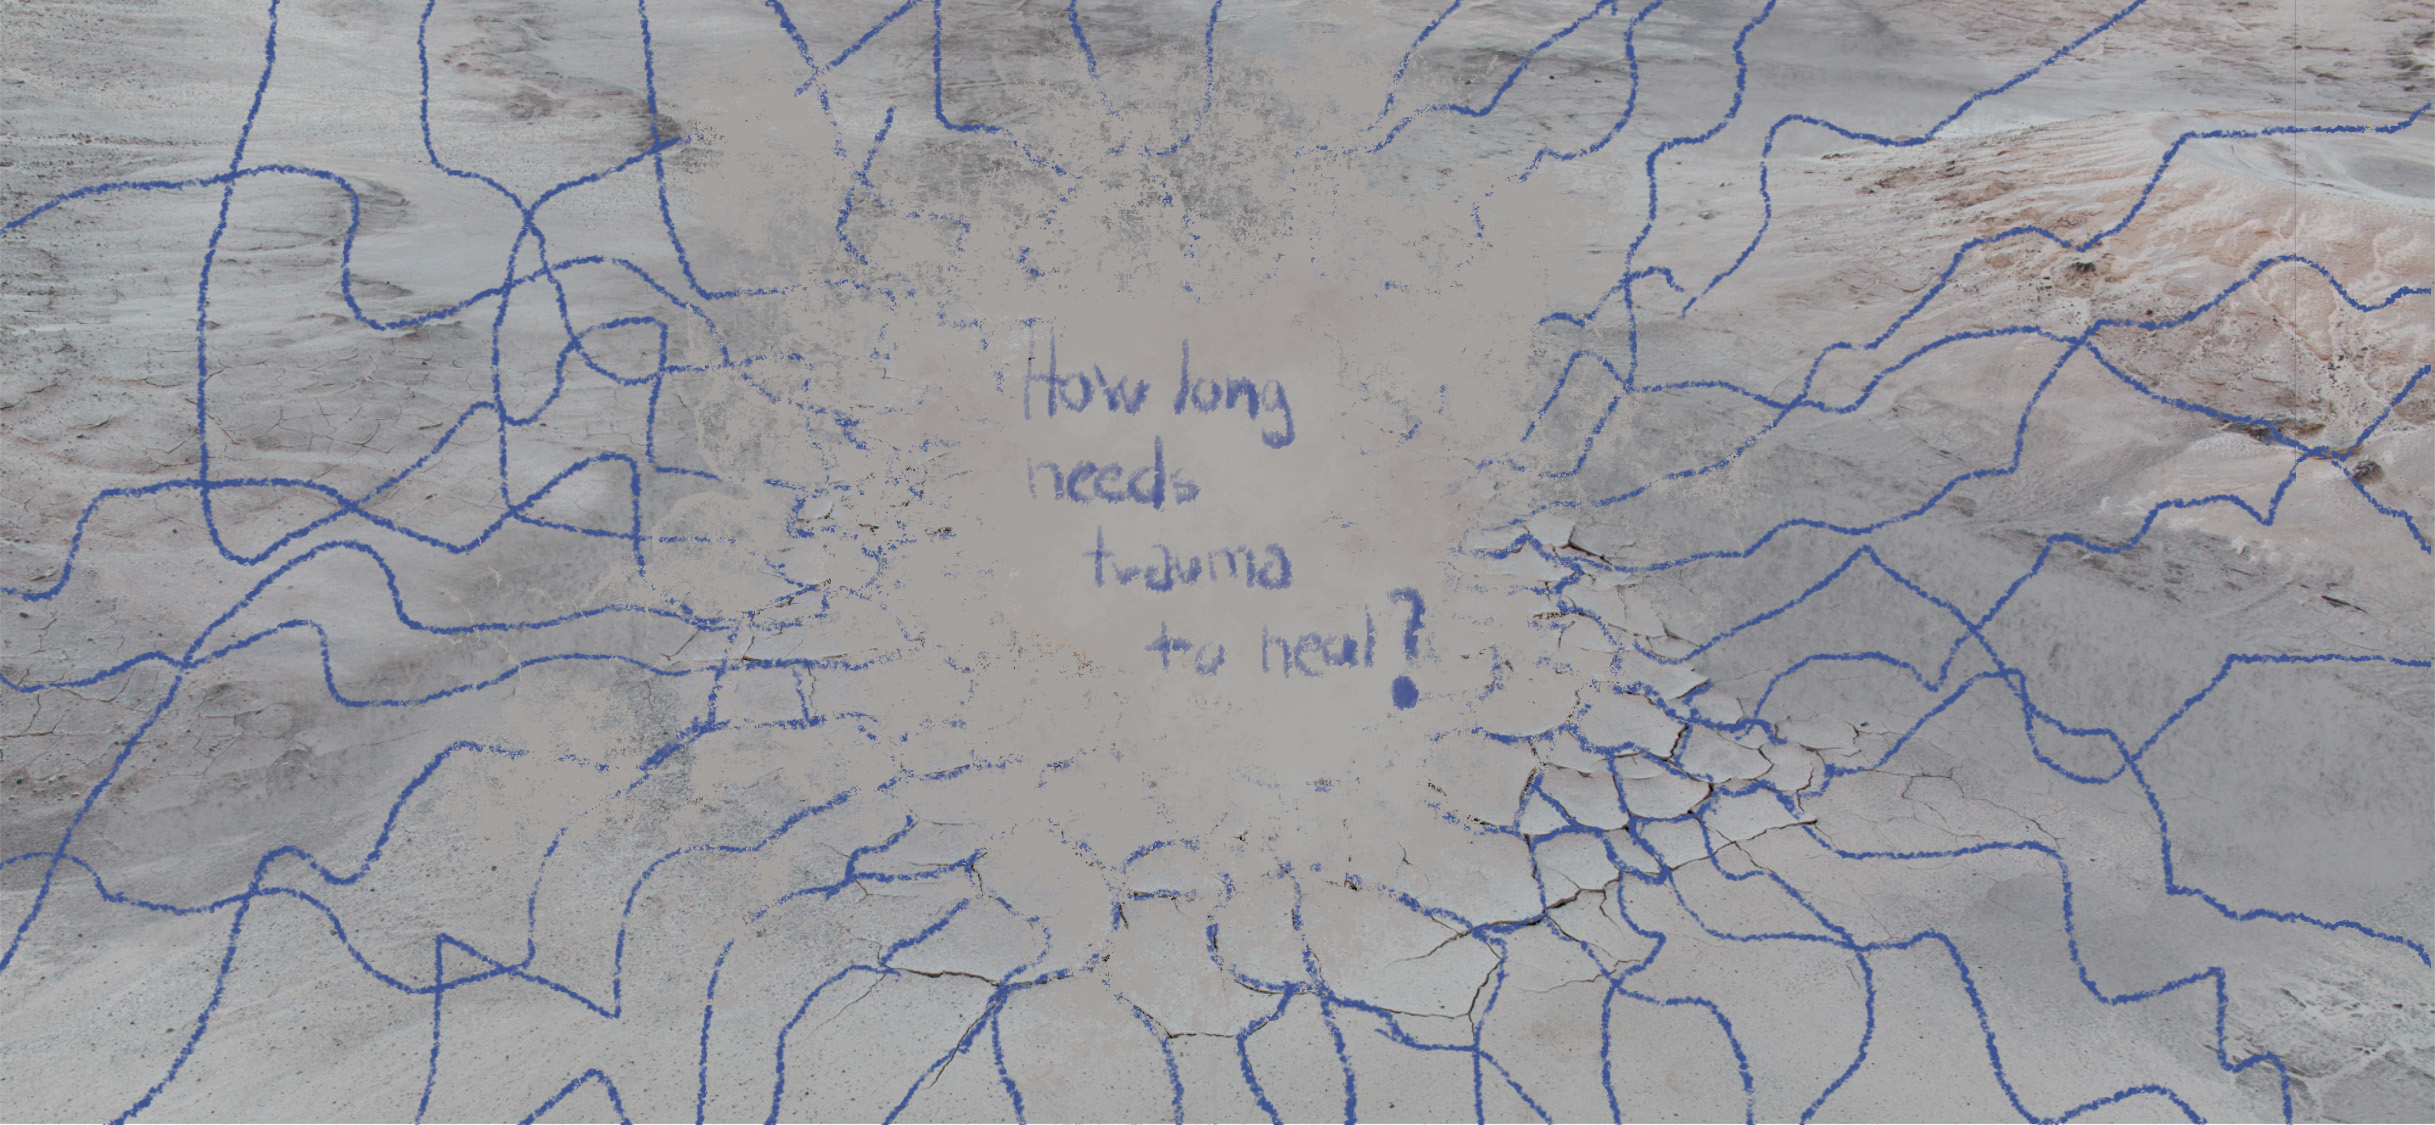 How long
needs
trauma
to heal?